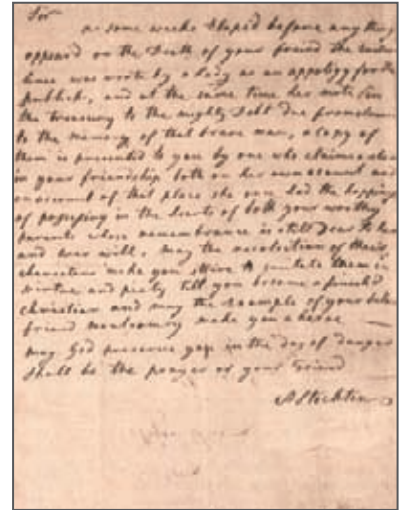 Sir
as some weeks Elapsd before any thing
appeard on the Death of your friend the
lines was wrote by a lady as an appoligy for the
publick, and at the same time her mite for
the treasury to the mighty Debt due from
to the memory of that brave man, a copy of
them is presented to you by one who claims a
in your friendship both on her own account and
on account of that place she once had the happiness
of possessing in the hearts of both your worthy
parents whose remembrance is still Dear to her
and ever will, may the recolection of their
characters make you strive to imitate them in
virtue and piety till you become a finishd
christian and may the Example of your
friend montgomry make you a heroe
may God preserve you in the day of danger
shall be the prayer of your friend
A Stockton